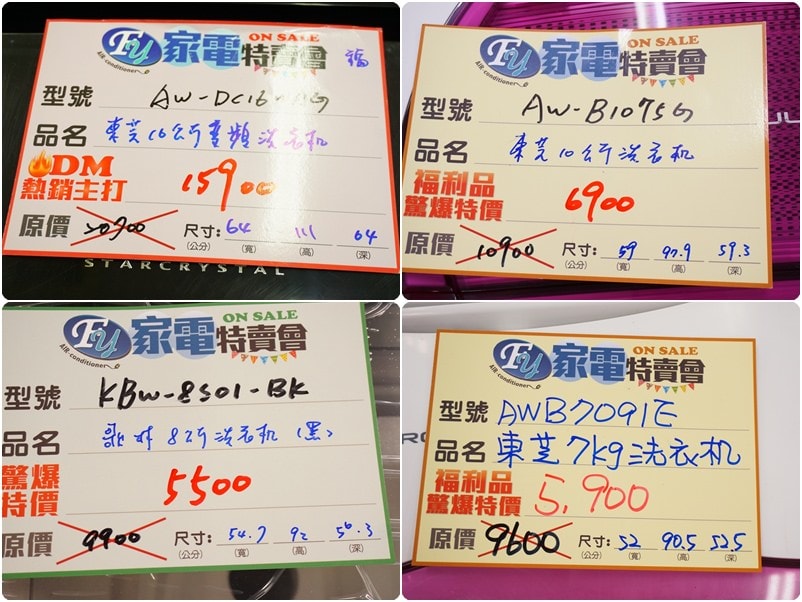 FY 家電特賣會 ON SALE 福
AIR-conditioner
型號
品名 東芝16公斤變頻洗衣机
DM
熱銷主打 15900
原價 20900 尺寸: 64 111 64
(公分) (寬) (高) (深)
STARCRYSTAL
FY 家電特賣會 ON SALE
AIR-conditioner
型號 AW-B1075G
品名 東芝10公斤洗衣机
福利品
驚爆特價 6900
原價 10900 尺寸: 59 97.9 59.3
(公分) (寬) (高) (深)
FY 家電特賣會 ON SALE
AIR-conditioner
型號 KBW-8S01-BK
品名 歌林8公斤洗衣机(黑)
驚爆
特價 5500
原價 9900 尺寸: 54.7 92 56.3
(公分) (寬) (高) (深)
FY 家電特賣會 ON SALE
AIR-conditioner
型號 AWB7091E
品名 東芝7kg洗衣机
福利品
驚爆特價 5,900
原價 9600 尺寸: 52 90.5 52.5
(公分) (寬) (高) (深)